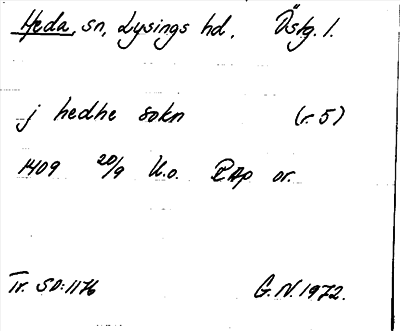 Heda, sn, Lysings hd, Östg. l.
j hedhe sokn (r. 5)
1409 20/9 U.o. RAp or.
Tr. SD:1176
G.N. 1972.